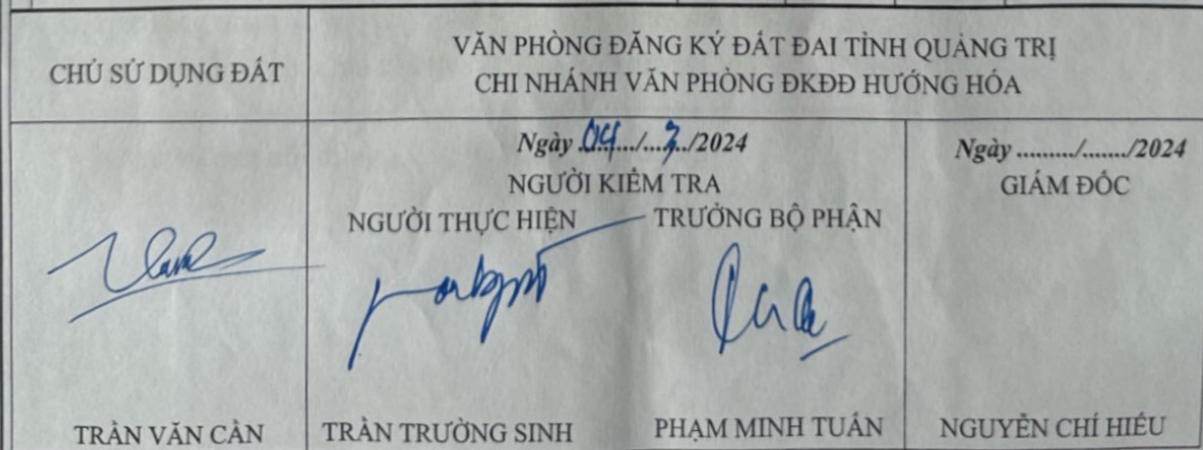 CHỦ SỬ DỤNG ĐẤT
VĂN PHÒNG ĐĂNG KÝ ĐẤT ĐAI TỈNH QUẢNG TRỊ
CHI NHÁNH VĂN PHÒNG ĐKĐĐ HƯỚNG HÓA
Ngày 04/3/2024
NGƯỜI KIỂM TRA
NGƯỜI THỰC HIỆN
TRƯỞNG BỘ PHẬN
Ngày ........./......./2024
GIÁM ĐỐC
TRẦN VĂN CẦN
TRẦN TRƯỜNG SINH
PHẠM MINH TUẤN
NGUYỄN CHÍ HIẾU